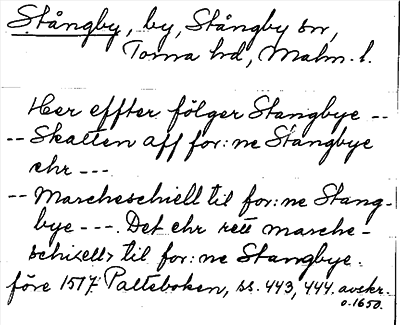 Stångby, by, Stångby sn,
Torna hd, Malm. l.
Her effter følger Stangbye --
-- Skatten aff for:ne Stangbye
ehr ---
-- Marcheschiell til for:ne Stang-
bye ---. Det ehr rett marche-
schi<ell> til for:ne Stangbye.
före 1517 Palteboken, ss. 443, 444. avskr.
o. 1650.